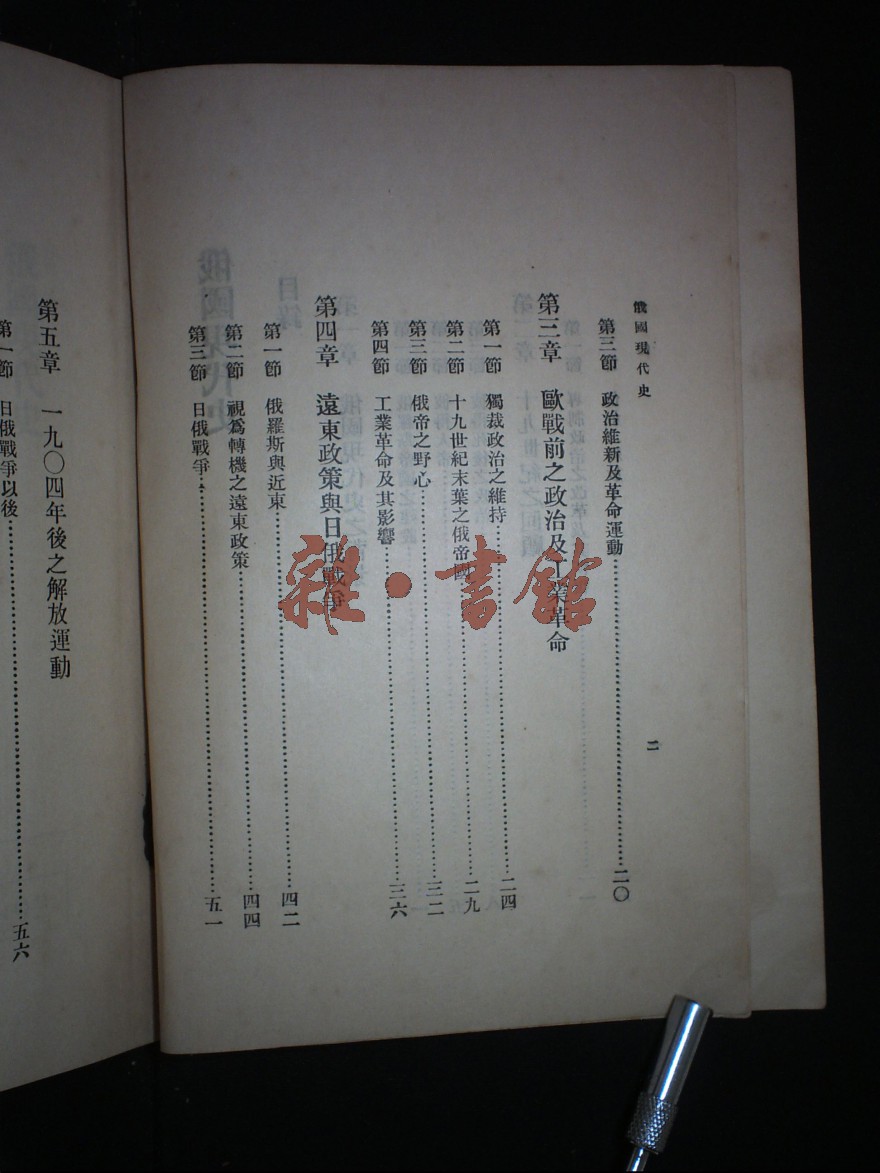 俄國現代史
二
第三節 政治維新及革命運動 二〇
第三章 歐戰前之政治及工業革命
第一節 獨裁政治之維持 二四
第二節 十九世紀末葉之俄帝國 二九
第三節 俄帝之野心 三二
第四節 工業革命及其影響 三六
第四章 遠東政策與日俄戰爭
第一節 俄羅斯與近東 四二
第二節 視爲轉機之遠東政策 四四
第三節 日俄戰爭 五一
第五章 一九〇四年後之解放運動
第一節 日俄戰爭以後 五六
雜·書館